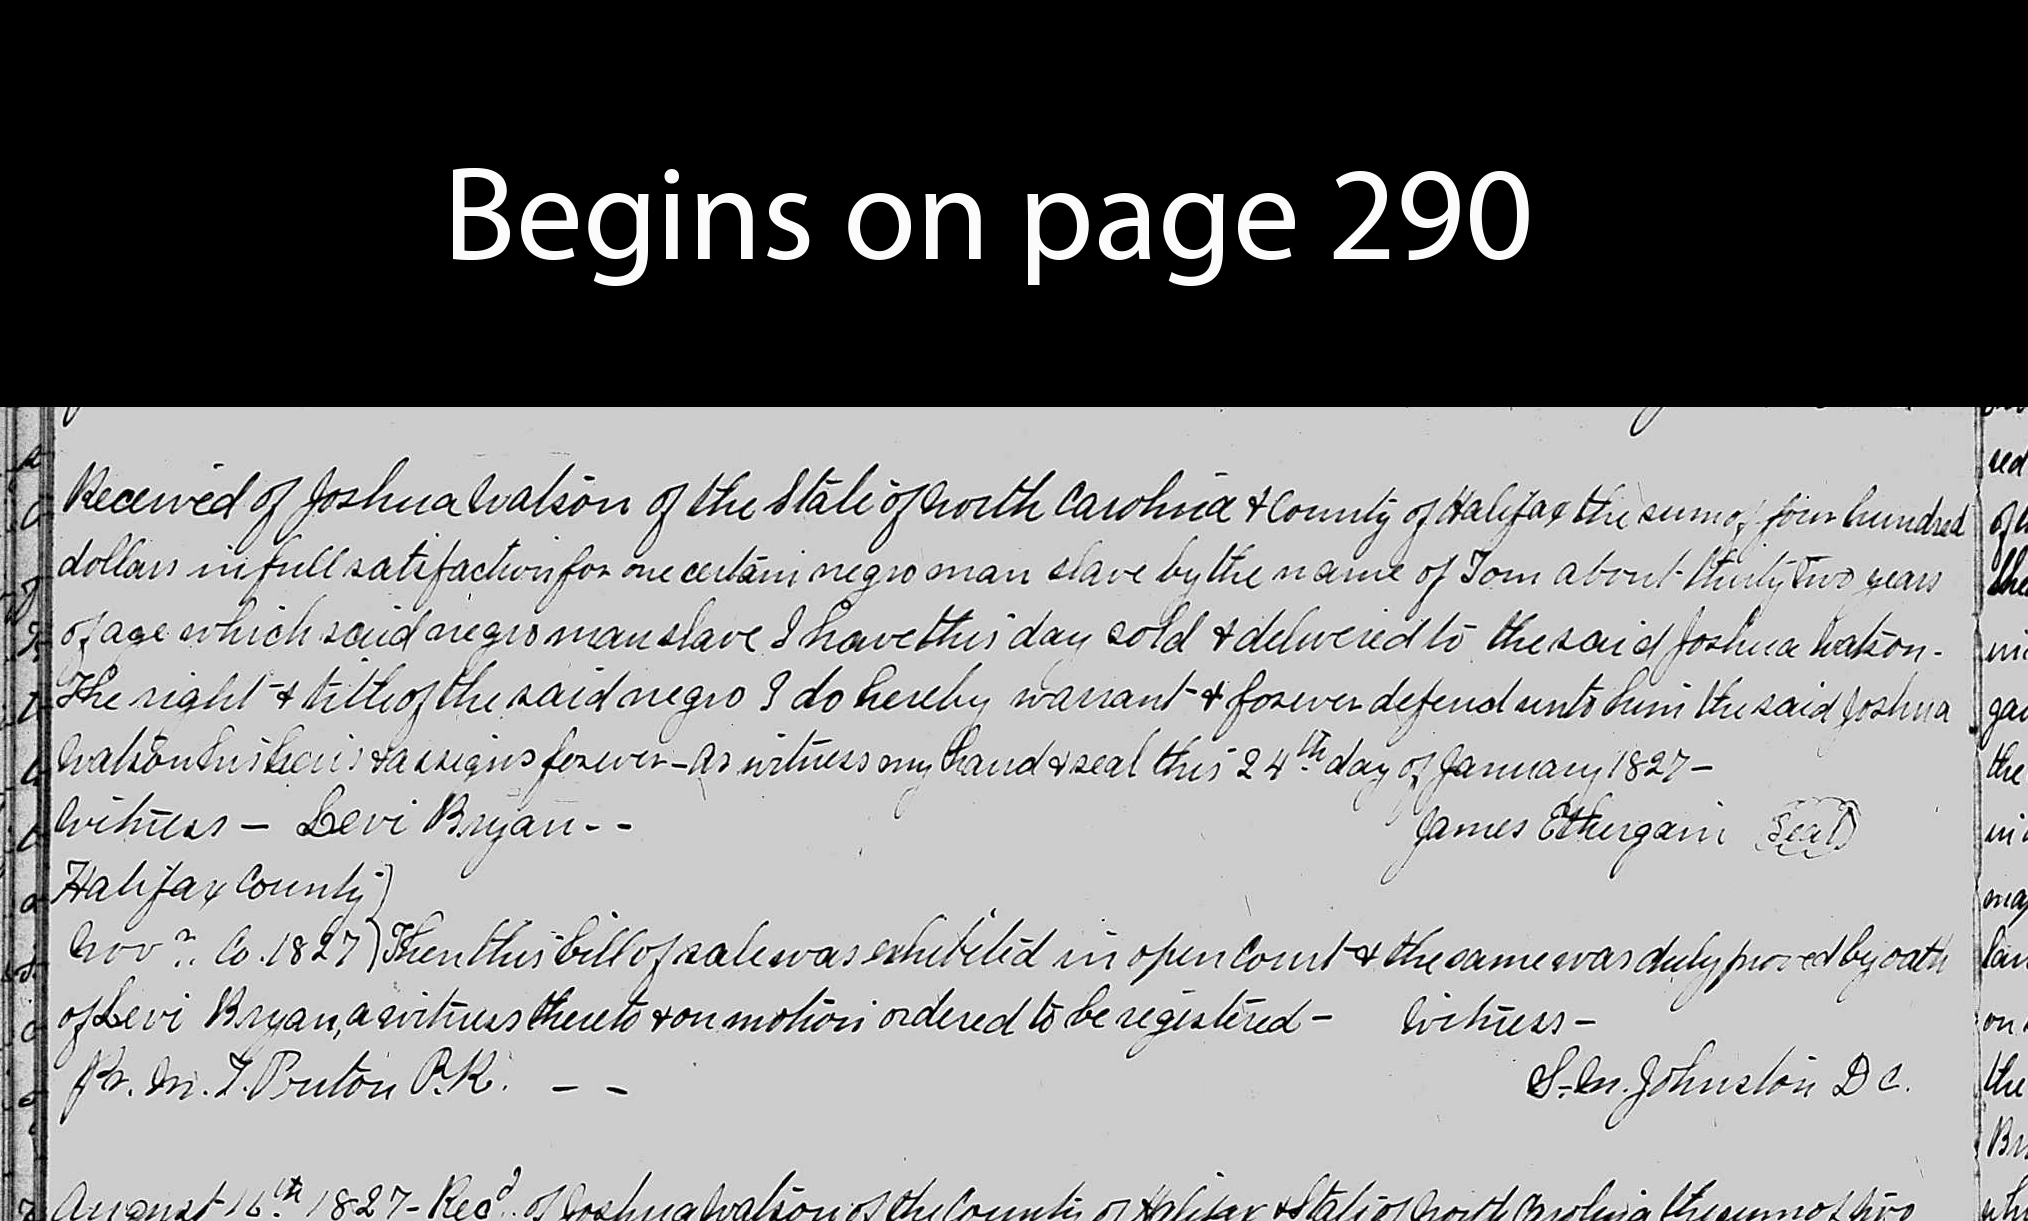 Begins on page 290
Received of Joshua Watson of the State of North Carolina & County of Halifax the sum of four hundred
dollars in full satisfaction for one certain negro man slave by the name of Tom about thirty two years
of age which said negro man slave I have this day sold & delivered to the said Joshua Watson -
The right & title of the said negro I do hereby warrant & forever defend unto him the said Joshua
Watson his heirs & assigns forever - As witness my hand & seal this 24th day of January 1827 -
Witness - Levi Bryan - -
James Ethergain Seal
Halifax County )
Novr. Co. 1827 ) Then this bill of sale was exhibited in open Court & the same was duly proved by oath
of Levi Bryan, a witness thereto & on motion ordered to be registered - Witness -
Pr. M. T. Ponton P.R. - -
S. M. Johnston D C.
August 16th 1827 - Recd. of Joshua Watson of the County of Halifax & State of North Carolina the sum of two